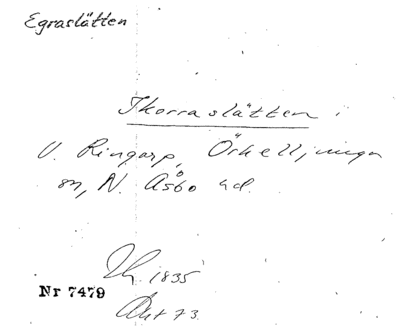 Egraslätten
Ikorraslätten
V. Ringarp, Örkelljunga
sn, N. Åsbo hd.
1835
Nr 7479
Akt 73